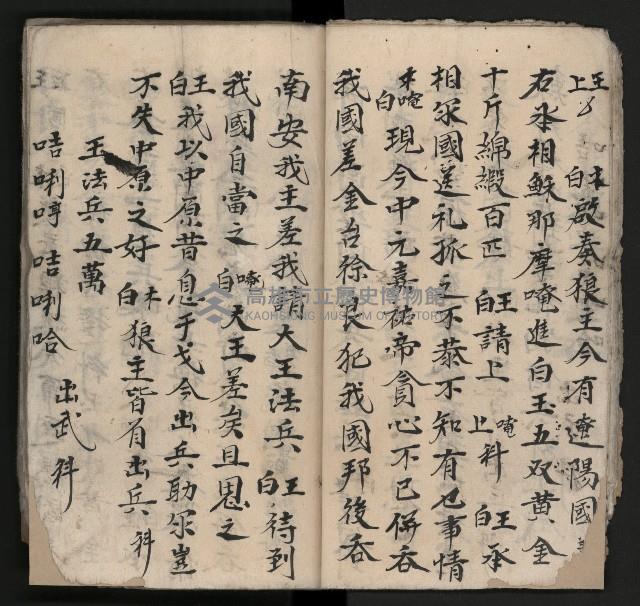 王
上
末
白 啟奏狼主今有遼陽國
右丞相穌那摩唵進白玉五双黄金
十斤綿緞百匹 王白 請上 唵上 科 王白 承
相尔國送礼孤之不恭不知有乜事情
唵白 現今中元嘉祐帝貪心不已併吞
我國差金台徐良犯我國邦後吞
南安我主差我請大王法兵 王白 待到
我國自當之 唵白 大王差矣且思之
王白 我以中原昔息于戈今出兵助尔豈
不失中原之好 末白 狼主皆有出兵 科
王法兵五萬
咭唎哼 咭唎哈 出武科
高雄市立歷史博物館
KAOHSIUNG MUSEUM OF HISTORY